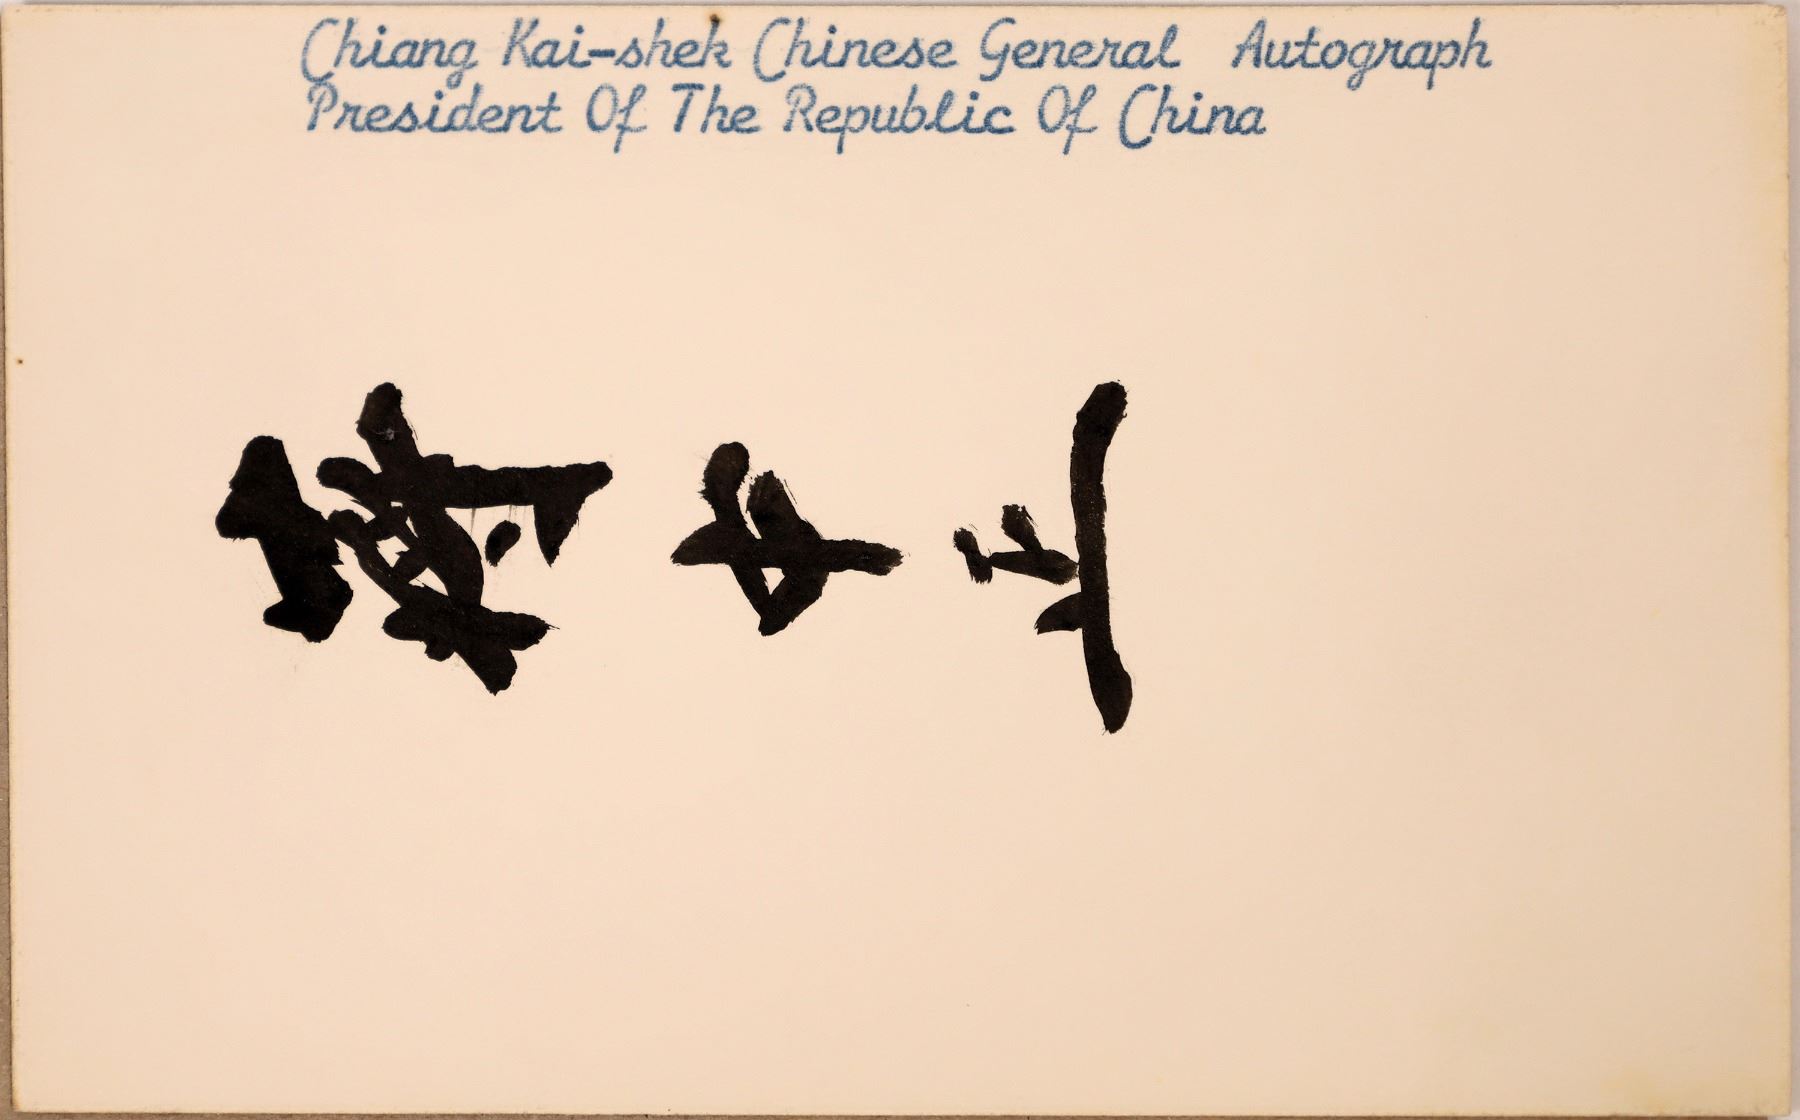 Chiang Kai-shek Chinese General Autograph
President Of The Republic Of China
蔣中正